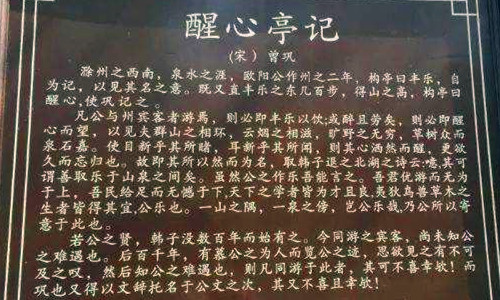 醒心亭记
(宋) 曾巩
滁州之西南，泉水之涯，欧阳公作州之二年，构亭曰丰乐，自
为记，以见其名之意。既又直丰乐之东几百步，得山之高，构亭曰
醒心，使巩记之。
凡公与州宾客者游焉，则必即丰乐以饮；或醉且劳矣，则必即醒
心而望，以见夫群山之相环，云烟之相滋，旷野之无穷，草树众而
泉石嘉。使目新乎其所睹，耳新乎其所闻，则其心洒然而醒，更欲
久而忘归也。故即其所以然而为名，取韩子退之北湖之诗云。噫，其可
谓善取乐于山泉之间矣。虽然公之作乐吾能言之。吾君优游而无为
于上，吾民给足而无憾于下，天下之学者皆为才且良，夷狄鸟兽草木之
生者皆得其宜，公乐也。一山之隅，一泉之傍，岂公乐哉，乃公所以寄
意于此也。
若公之贤，韩子没数百年而始有之。今同游之宾客，尚未知公
之难遇也。后百千年，有慕公之为人而览公之迹，思欲见之有不可
及之叹，然后知公之难遇也，则凡同游于此者，其可不喜幸欤！而
巩也又得以文辞托名于公文之次，其又不喜且幸欤！